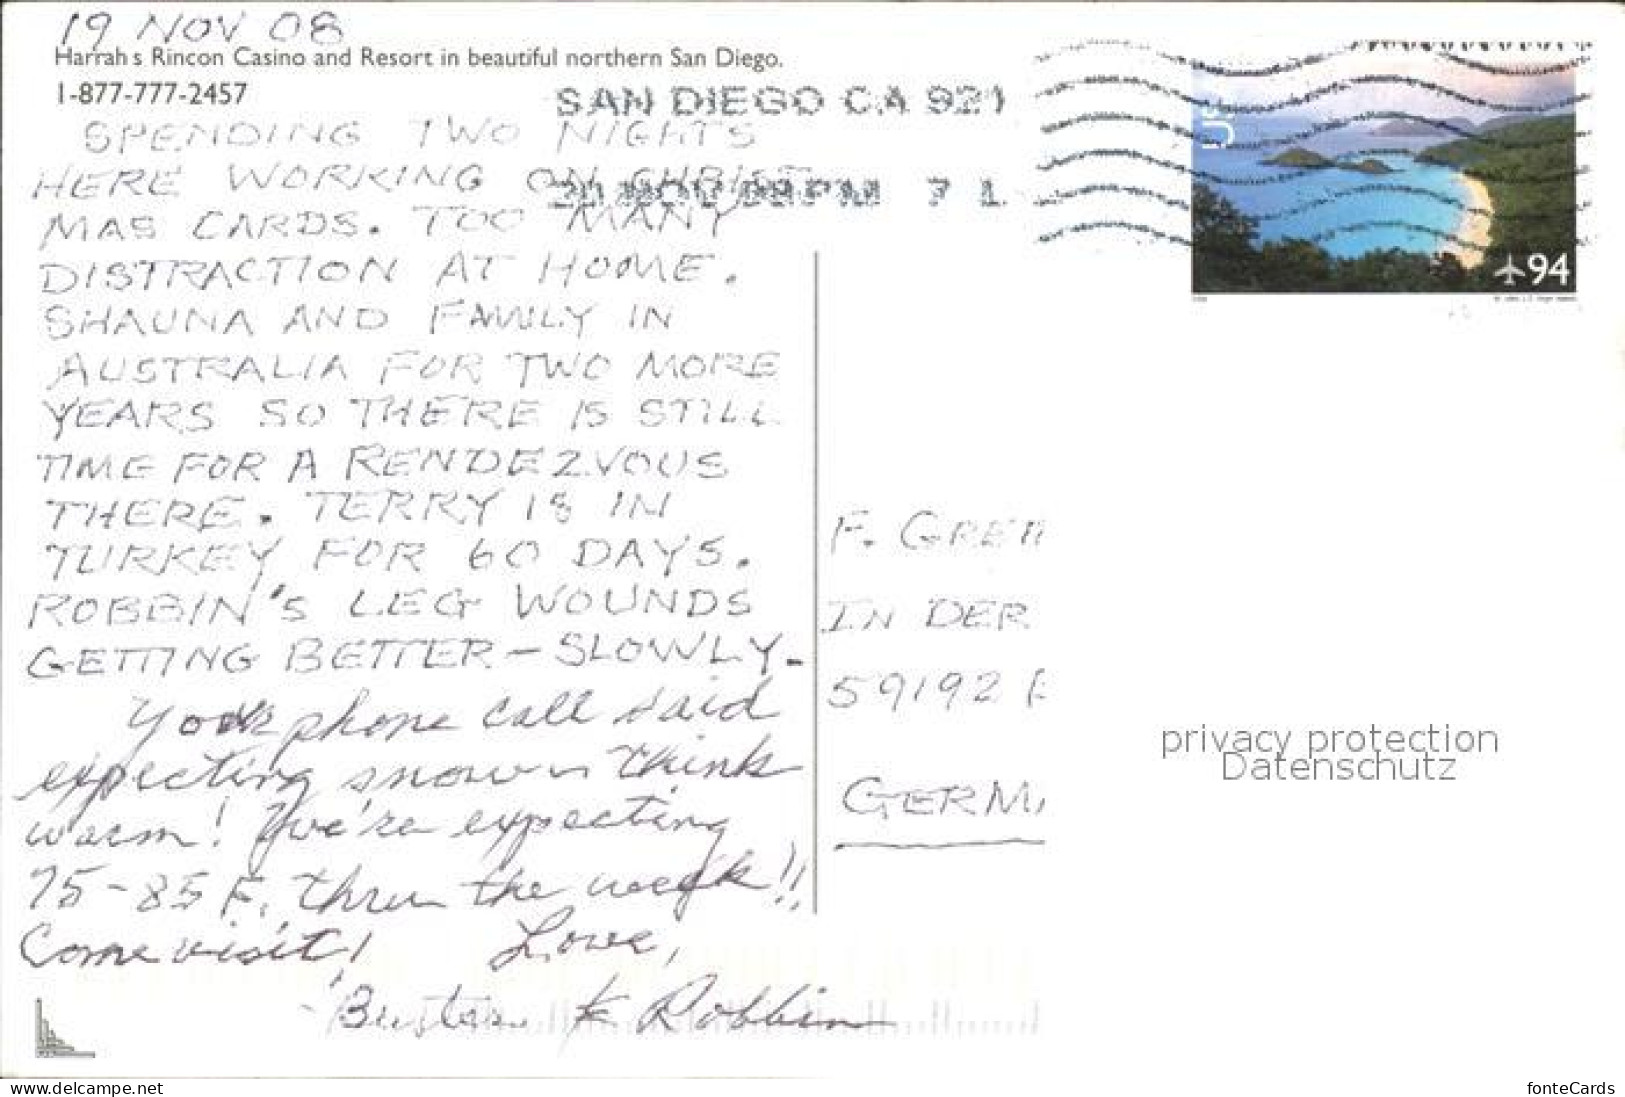 19 NOV 08
Harrah's Rincon Casino and Resort in beautiful northern San Diego.
1-877-777-2457
SAN DIEGO CA 921
20 NOV 08 PM 7 L
USA
94
SPENDING TWO NIGHTS
HERE WORKING ON CHRIST
MAS CARDS. TOO MANY
DISTRACTION AT HOME.
SHAUNA AND FAMILY IN
AUSTRALIA FOR TWO MORE
YEARS SO THERE IS STILL
TIME FOR A RENDEZVOUS
THERE. TERRY IS IN
TURKEY FOR 60 DAYS.
ROBBIN'S LEG WOUNDS
GETTING BETTER - SLOWLY.
Your phone call said
expecting snow - think
warm! We're expecting
75-85 F. thru the week!!
Come visit! Love,
Buster & Robbin
F. GRE
IN DER
59192
GERMA
privacy protection
Datenschutz
www.delcampe.net
fonteCards